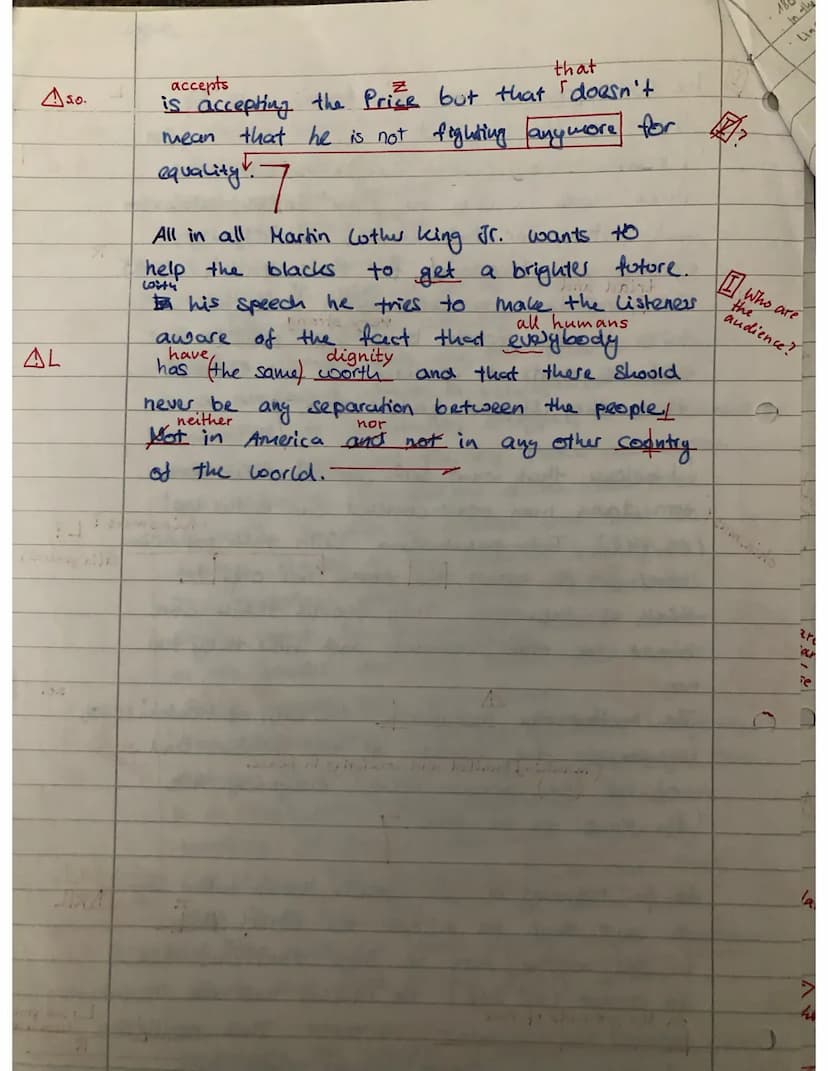 accepts
z
that
⚠ so.
is accepting the Price but that doesn't
mean that he is not fighting anymore for
?
equality.
All in all Martin Luther King Jr. wants to
help the blacks to get a brighter future.
with
his speech he tries to make the Listeners
I Who are
the
audience?
all humans
aware of the fact that everybody
have
dignity
⚠ L
has (the same) worth and that there should
never be any separation between the people.
neither
nor
Not in America and not in any other country
of the world.